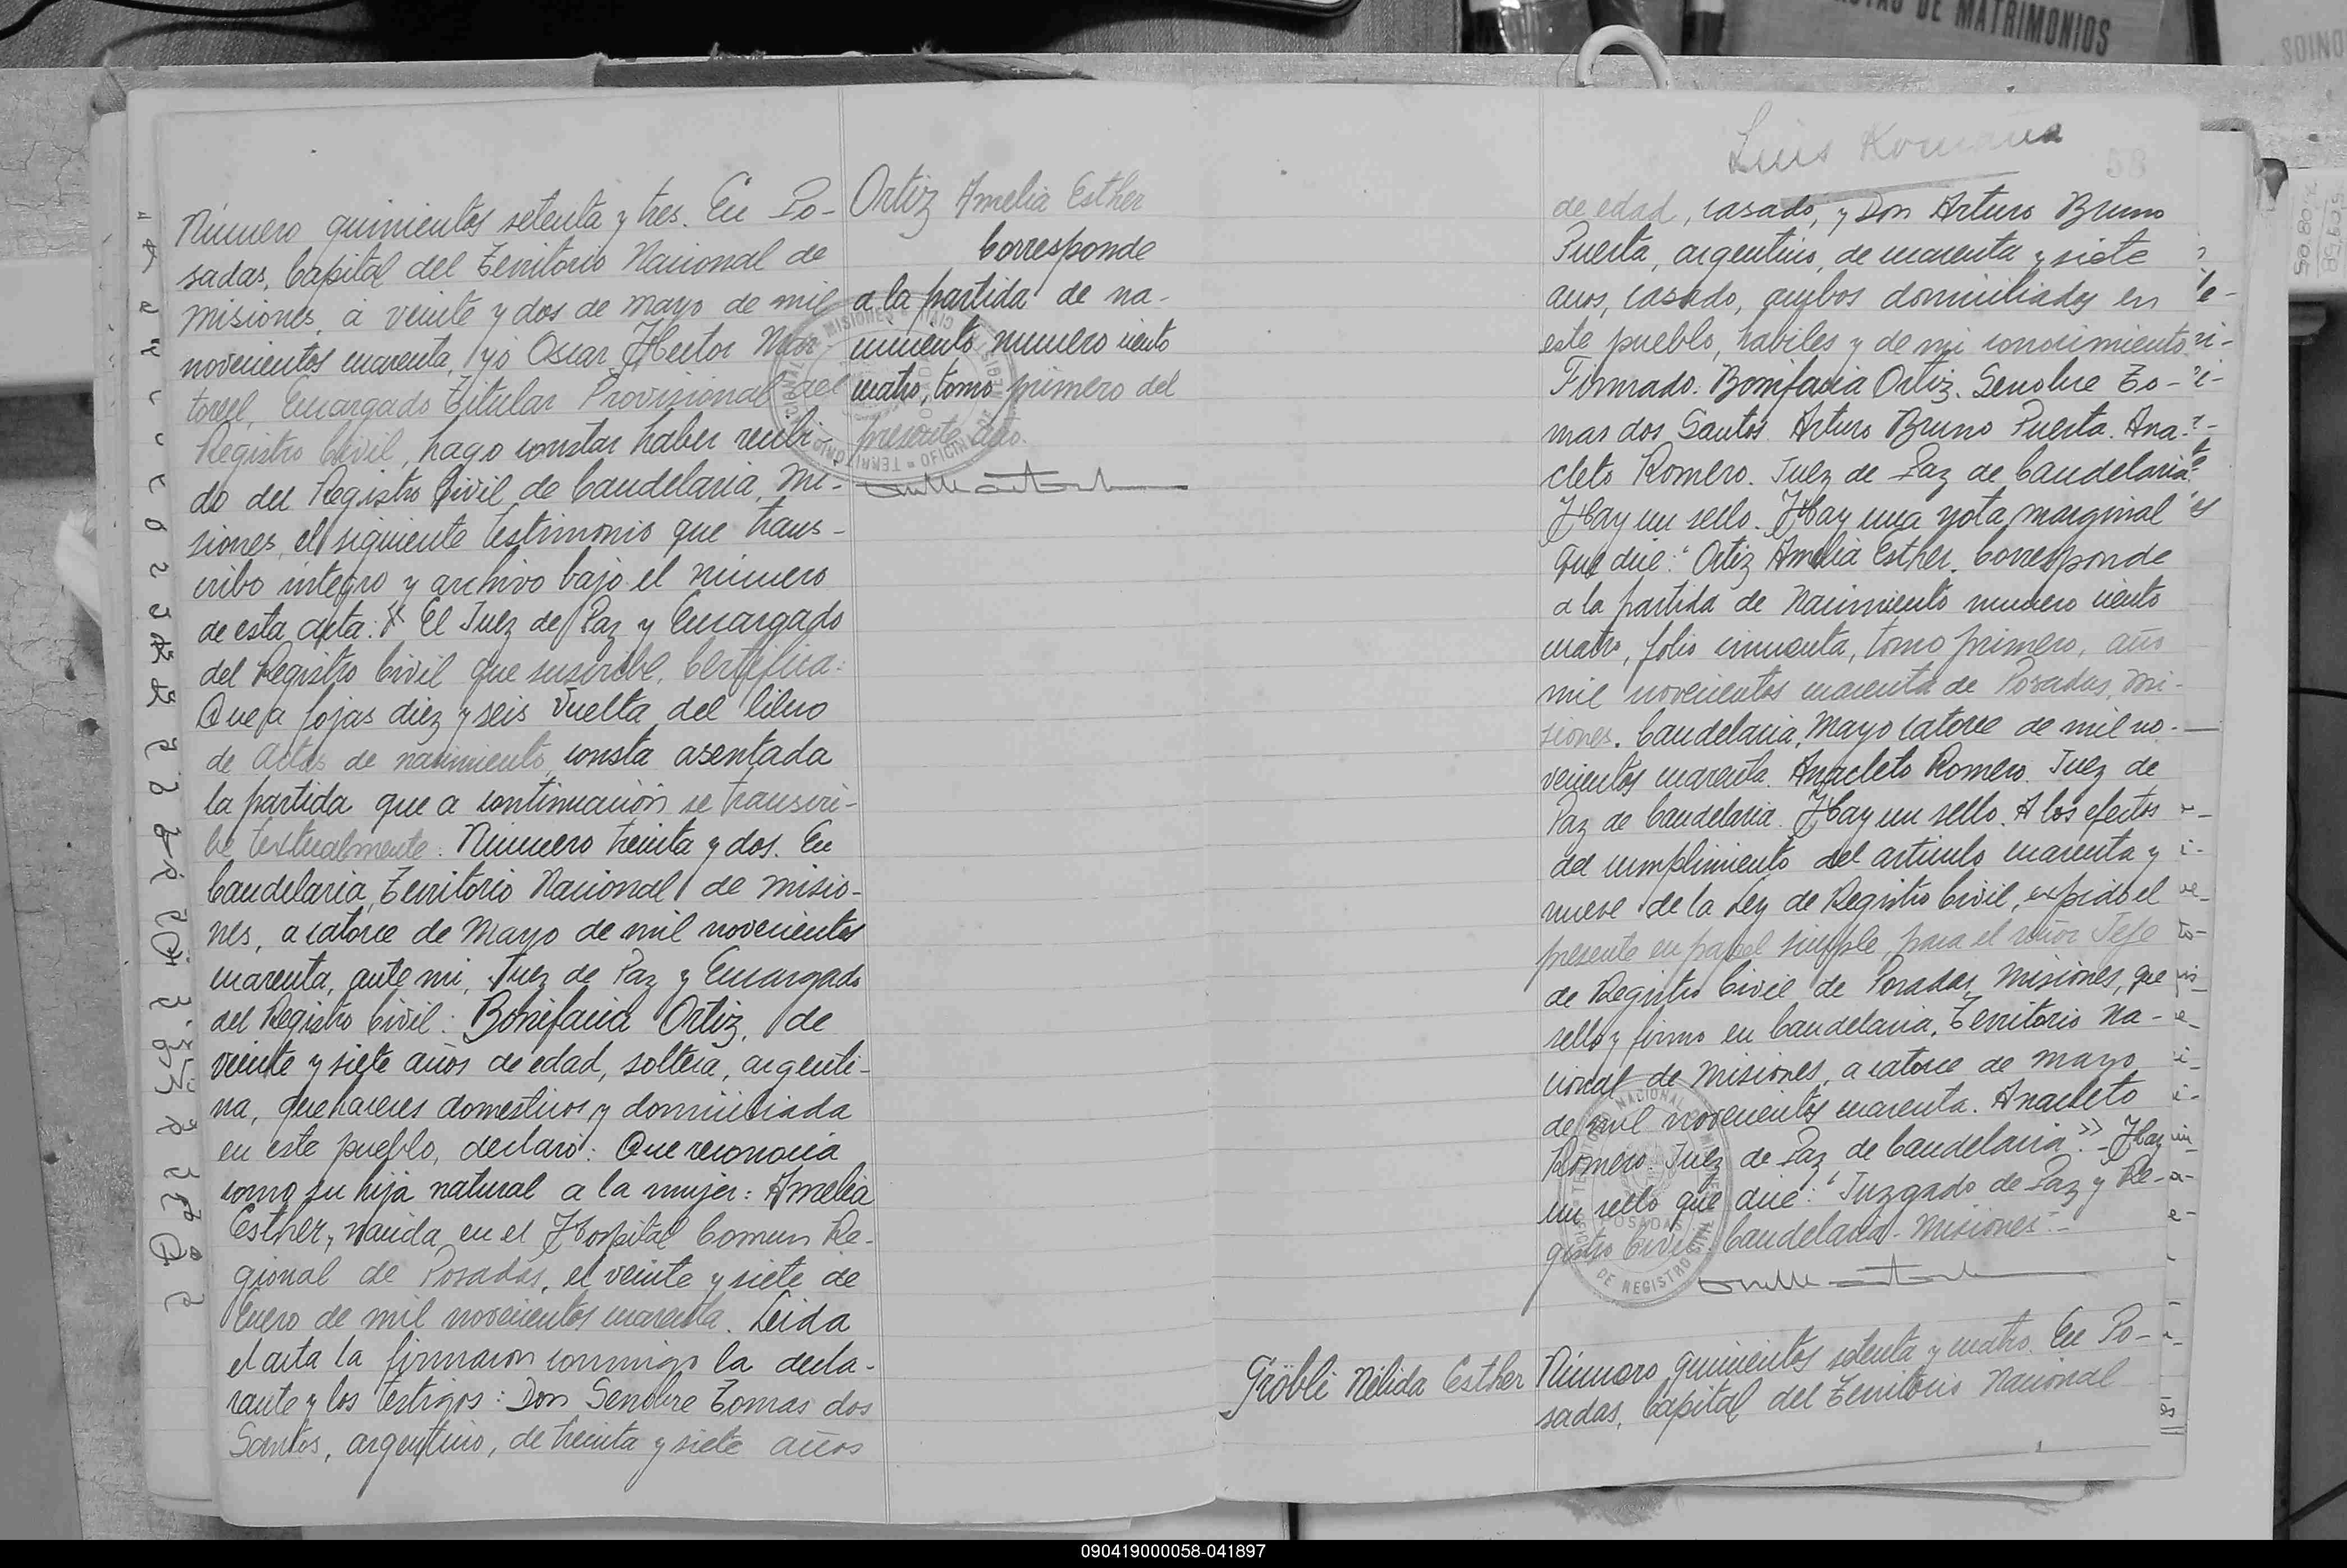 DE MATRIMONIOS
Número quinientos setenta y tres. En Po-
sadas, Capital del Territorio Nacional de
Misiones, a veinte y dos de Mayo de mil
novecientos cuarenta, yo Oscar Hector Mar-
torell, Encargado Titular Provisional del
Registro Civil, hago constar haber recibi-
do del Registro Civil de Candelaria, Mi-
siones, el siguiente testimonio que trans-
cribo integro y archivo bajo el número
de esta acta: « El Juez de Paz y Encargado
del Registro Civil que suscribe, Certifica:
Que a fojas diez y seis vuelta del libro
de Actas de nacimiento, consta asentada
la partida que a continuación se transcri-
be textualmente: Número treinta y dos. En
Candelaria, Territorio Nacional de Misio-
nes, a catorce de Mayo de mil novecientos
cuarenta, ante mi, Juez de Paz y Encargado
del Registro Civil: Bonifacia Ortiz, de
veinte y siete años de edad, soltera, argenti-
na, quehaceres domesticos y domiciliada
en este pueblo, declaró: Que reconocia
como su hija natural a la mujer: Amelia
Esther, nacida en el Hospital Comun Re-
gional de Posadas, el veinte y siete de
Enero de mil novecientos cuarenta. Leida
el acta la firmaron conmigo la decla-
rante y los testigos: Don Senobre Tomas dos
Santos, argentino, de treinta y siete años
Ortiz Amelia Esther
Corresponde
a la partida de na-
cimiento numero ciento
cuatro, tomo primero del
presente año.
Luis Romaña
58
de edad, casado, y Don Arturo Bruno
Puerta, argentino, de cuarenta y siete
años, casado, ambos domiciliados en
este pueblo, habiles y de mi conocimiento.
Firmado: Bonifacia Ortiz. Senobre To-
mas dos Santos. Arturo Bruno Puerta. Ana-
cleto Romero. Juez de Paz de Candelaria.
Hay un sello. Hay una nota marginal
que dice: "Ortiz Amelia Esther. Corresponde
a la partida de Nacimiento numero ciento
cuatro, folio cincuenta, tomo primero, año
mil novecientos cuarenta de Posadas, Mi-
siones. Candelaria, Mayo catorce de mil no-
vecientos cuarenta. Anacleto Romero. Juez de
Paz de Candelaria. Hay un sello. A los efectos
del cumplimiento del articulo cuarenta y
nueve de la Ley de Registro Civil, expido el
presente en papel simple, para el señor Jefe
de Registro Civil de Posadas, Misiones, que
sello y firmo en Candelaria, Territorio Na-
cional de Misiones, a catorce de Mayo
de mil novecientos cuarenta. Anacleto
Romero. Juez de Paz de Candelaria".» Hay
un sello que dice: "Juzgado de Paz y Re-
gistro Civil. Candelaria. Misiones".-
Gröbli Nélida Esther
Número quinientos setenta y cuatro. En Po-
sadas, Capital del Territorio Nacional
090419000058-041897